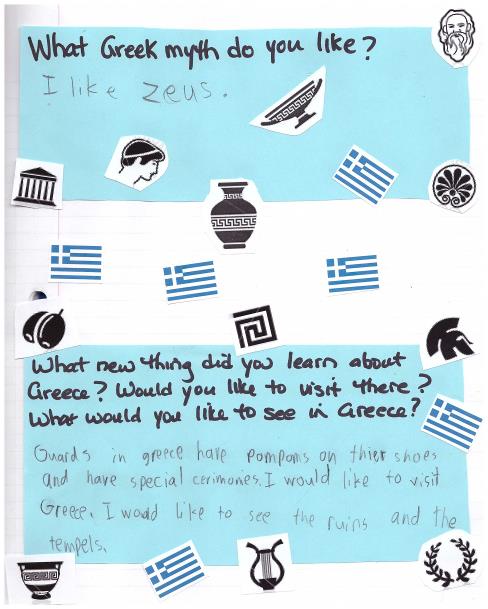 What Greek myth do you like?
I like zeus.
What new thing did you learn about
Greece? Would you like to visit there?
What would you like to see in Greece?
Guards in greece have pompoms on thier shoes
and have special cerimonies. I would like to visit
Greece. I woud like to see the ruins and the
tempels.